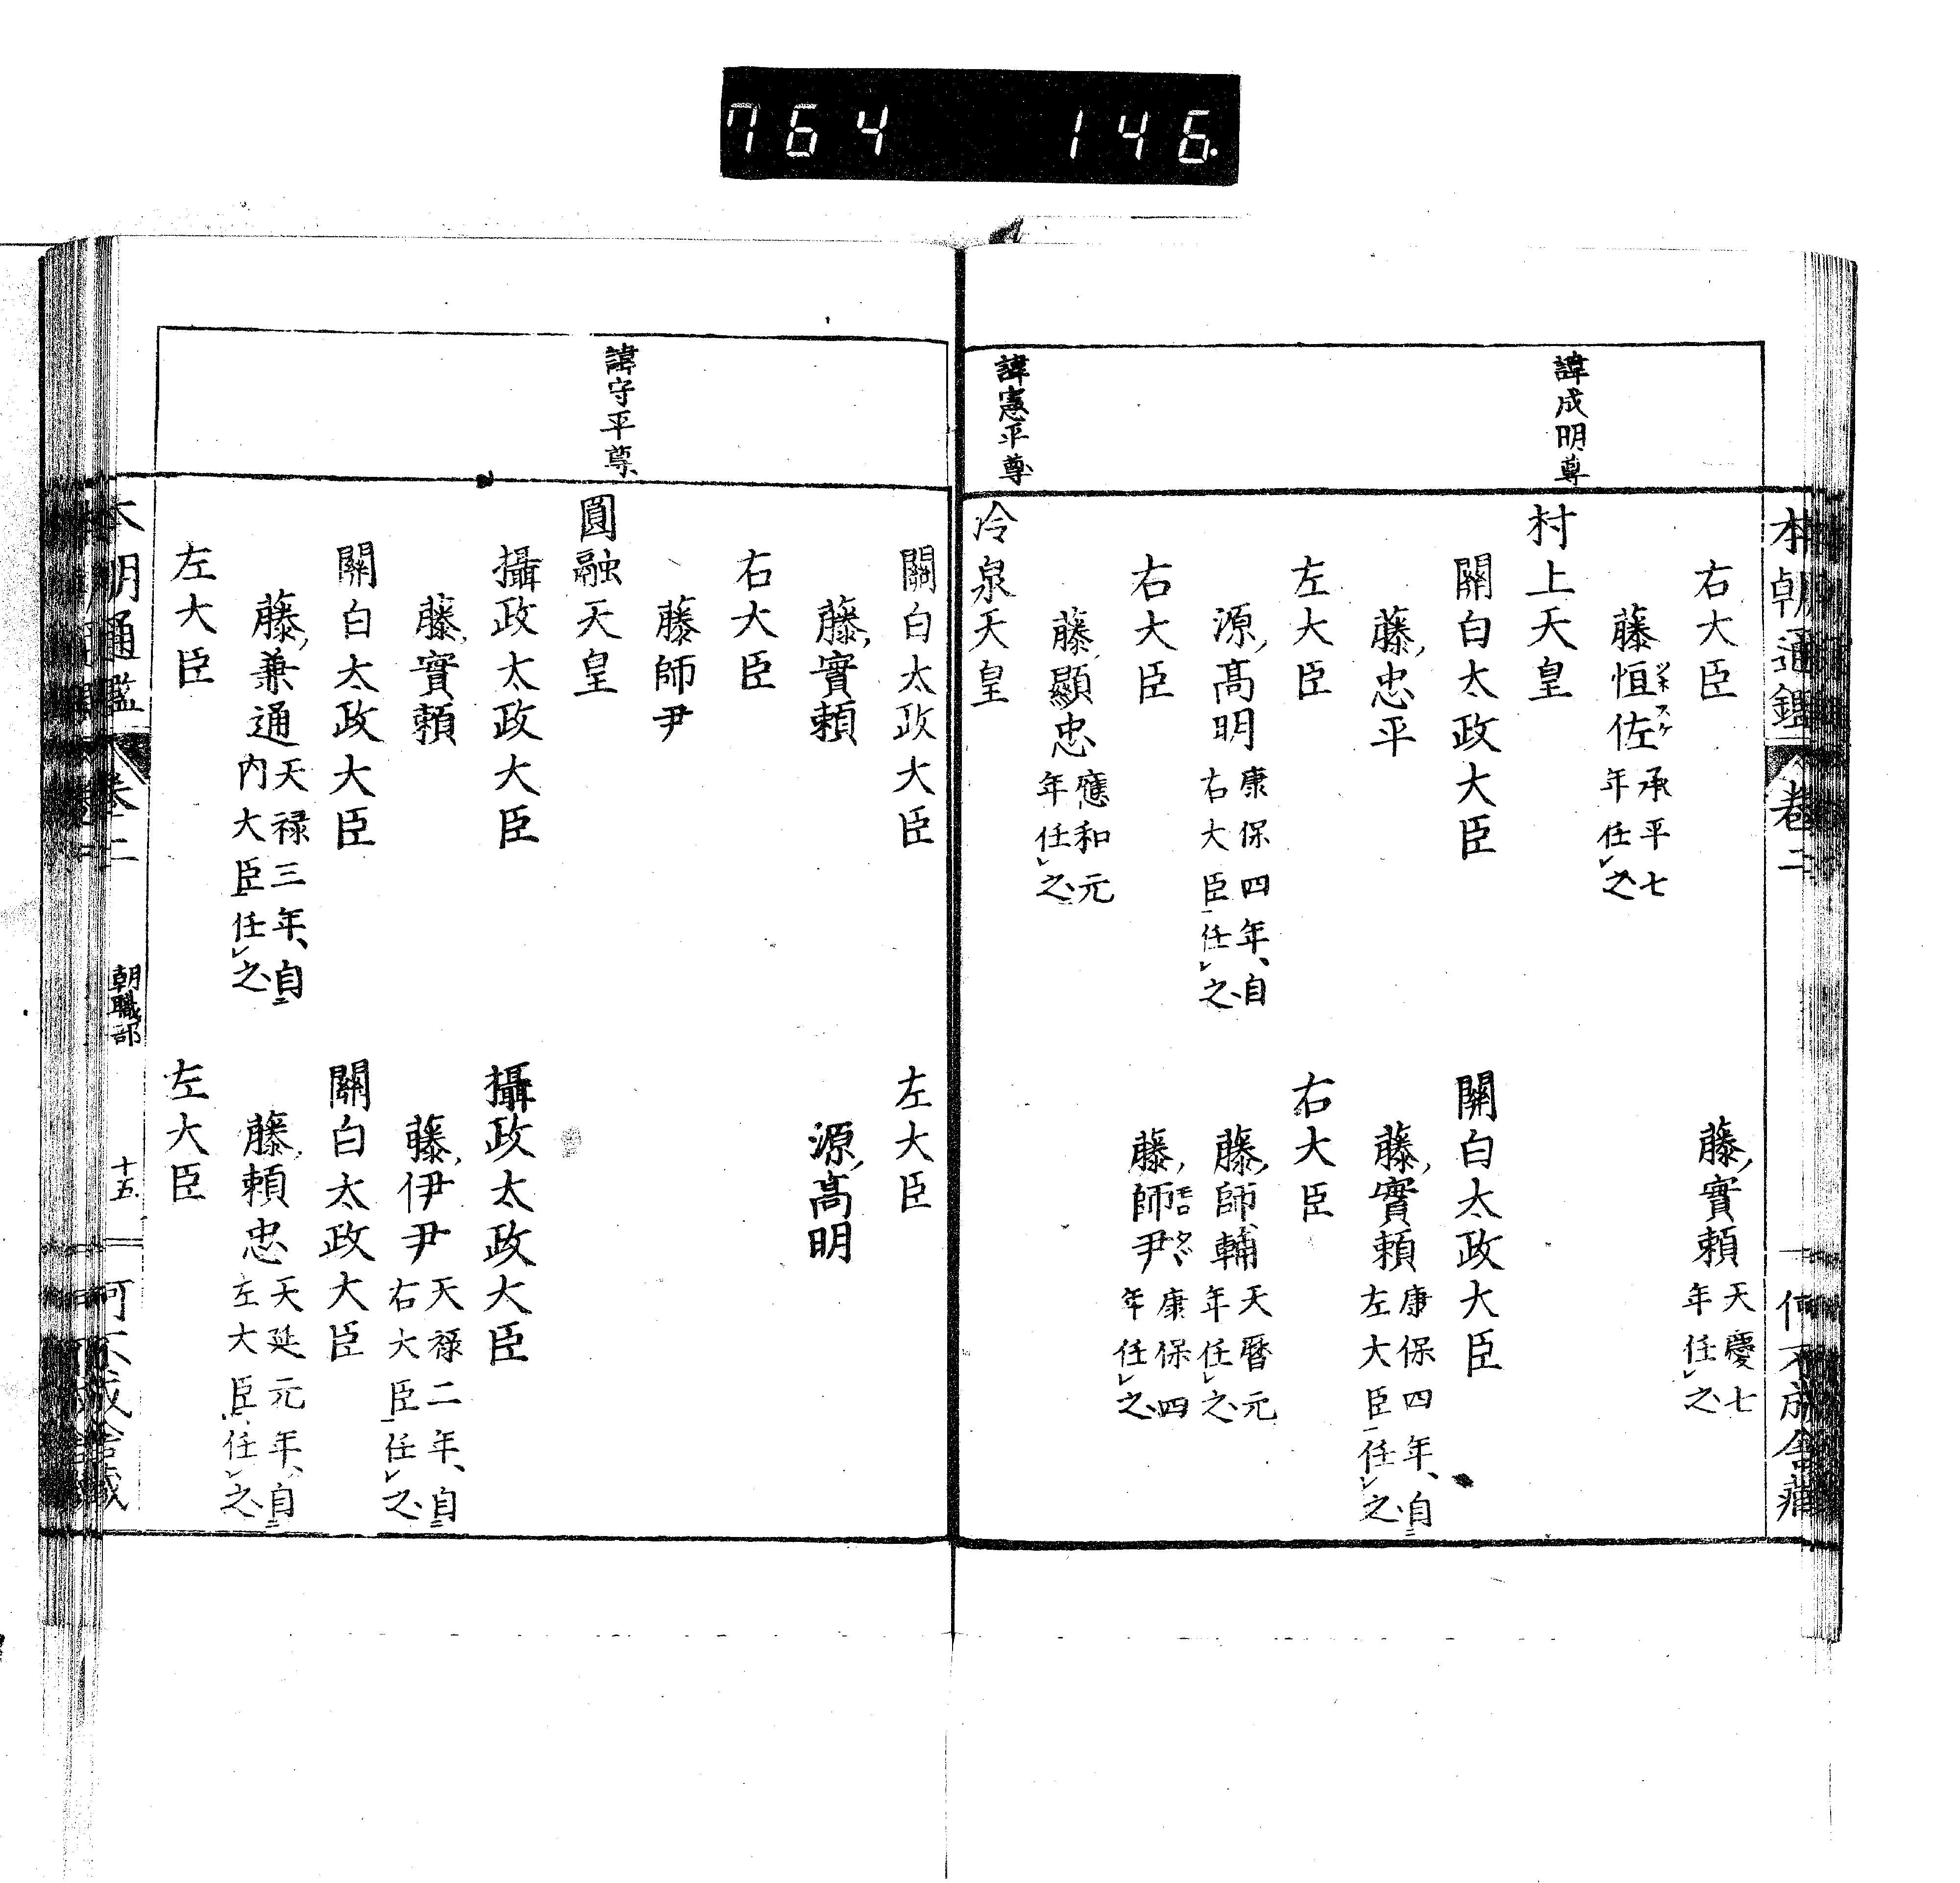 764 146.
本朝通鑑 卷二
何不成舍藏
右大臣
藤恒佐 承平七年任之
藤實賴 天慶七年任之
諱成明尊
村上天皇
關白太政大臣
藤忠平
關白太政大臣
藤實賴 康保四年自左大臣任之
左大臣
源高明 康保四年自右大臣任之
右大臣
藤師輔 天曆元年任之
右大臣
藤顯忠 應和元年任之
藤師尹 康保四年任之
諱憲平尊
冷泉天皇
關白太政大臣
藤實賴
左大臣
源高明
右大臣
藤師尹
諱守平尊
圓融天皇
攝政太政大臣
藤實賴
攝政太政大臣
藤伊尹 天祿二年自右大臣任之
關白太政大臣
藤兼通 天禄三年自內大臣任之
關白太政大臣
藤賴忠 天延元年自左大臣任之
左大臣
左大臣
本朝通鑑 卷二
朝職部
十五
何不成舍藏